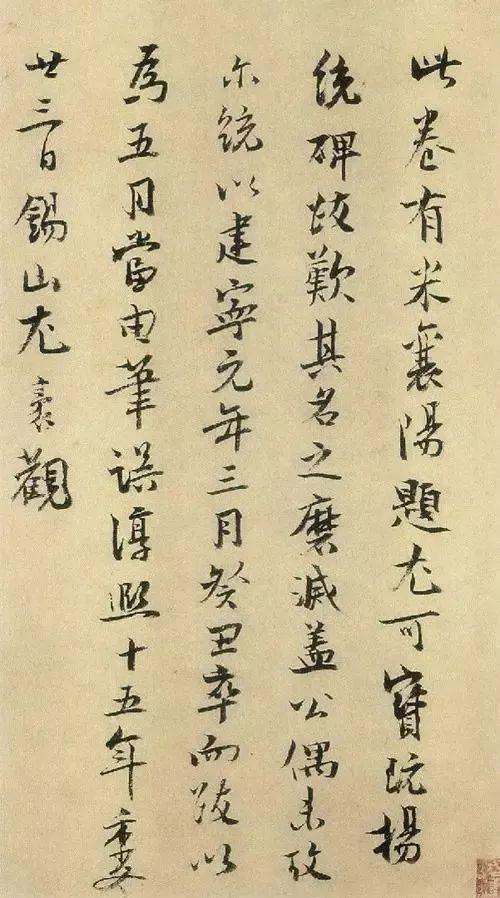 此卷有米襄陽題尤可寶玩楊
統碑跋歎其名之磨滅蓋公偶未攷
尒統以建寧元年三月癸丑卒而跋以
為五月當由筆誤淳熙十五年季夏
廿三日錫山尤袤觀